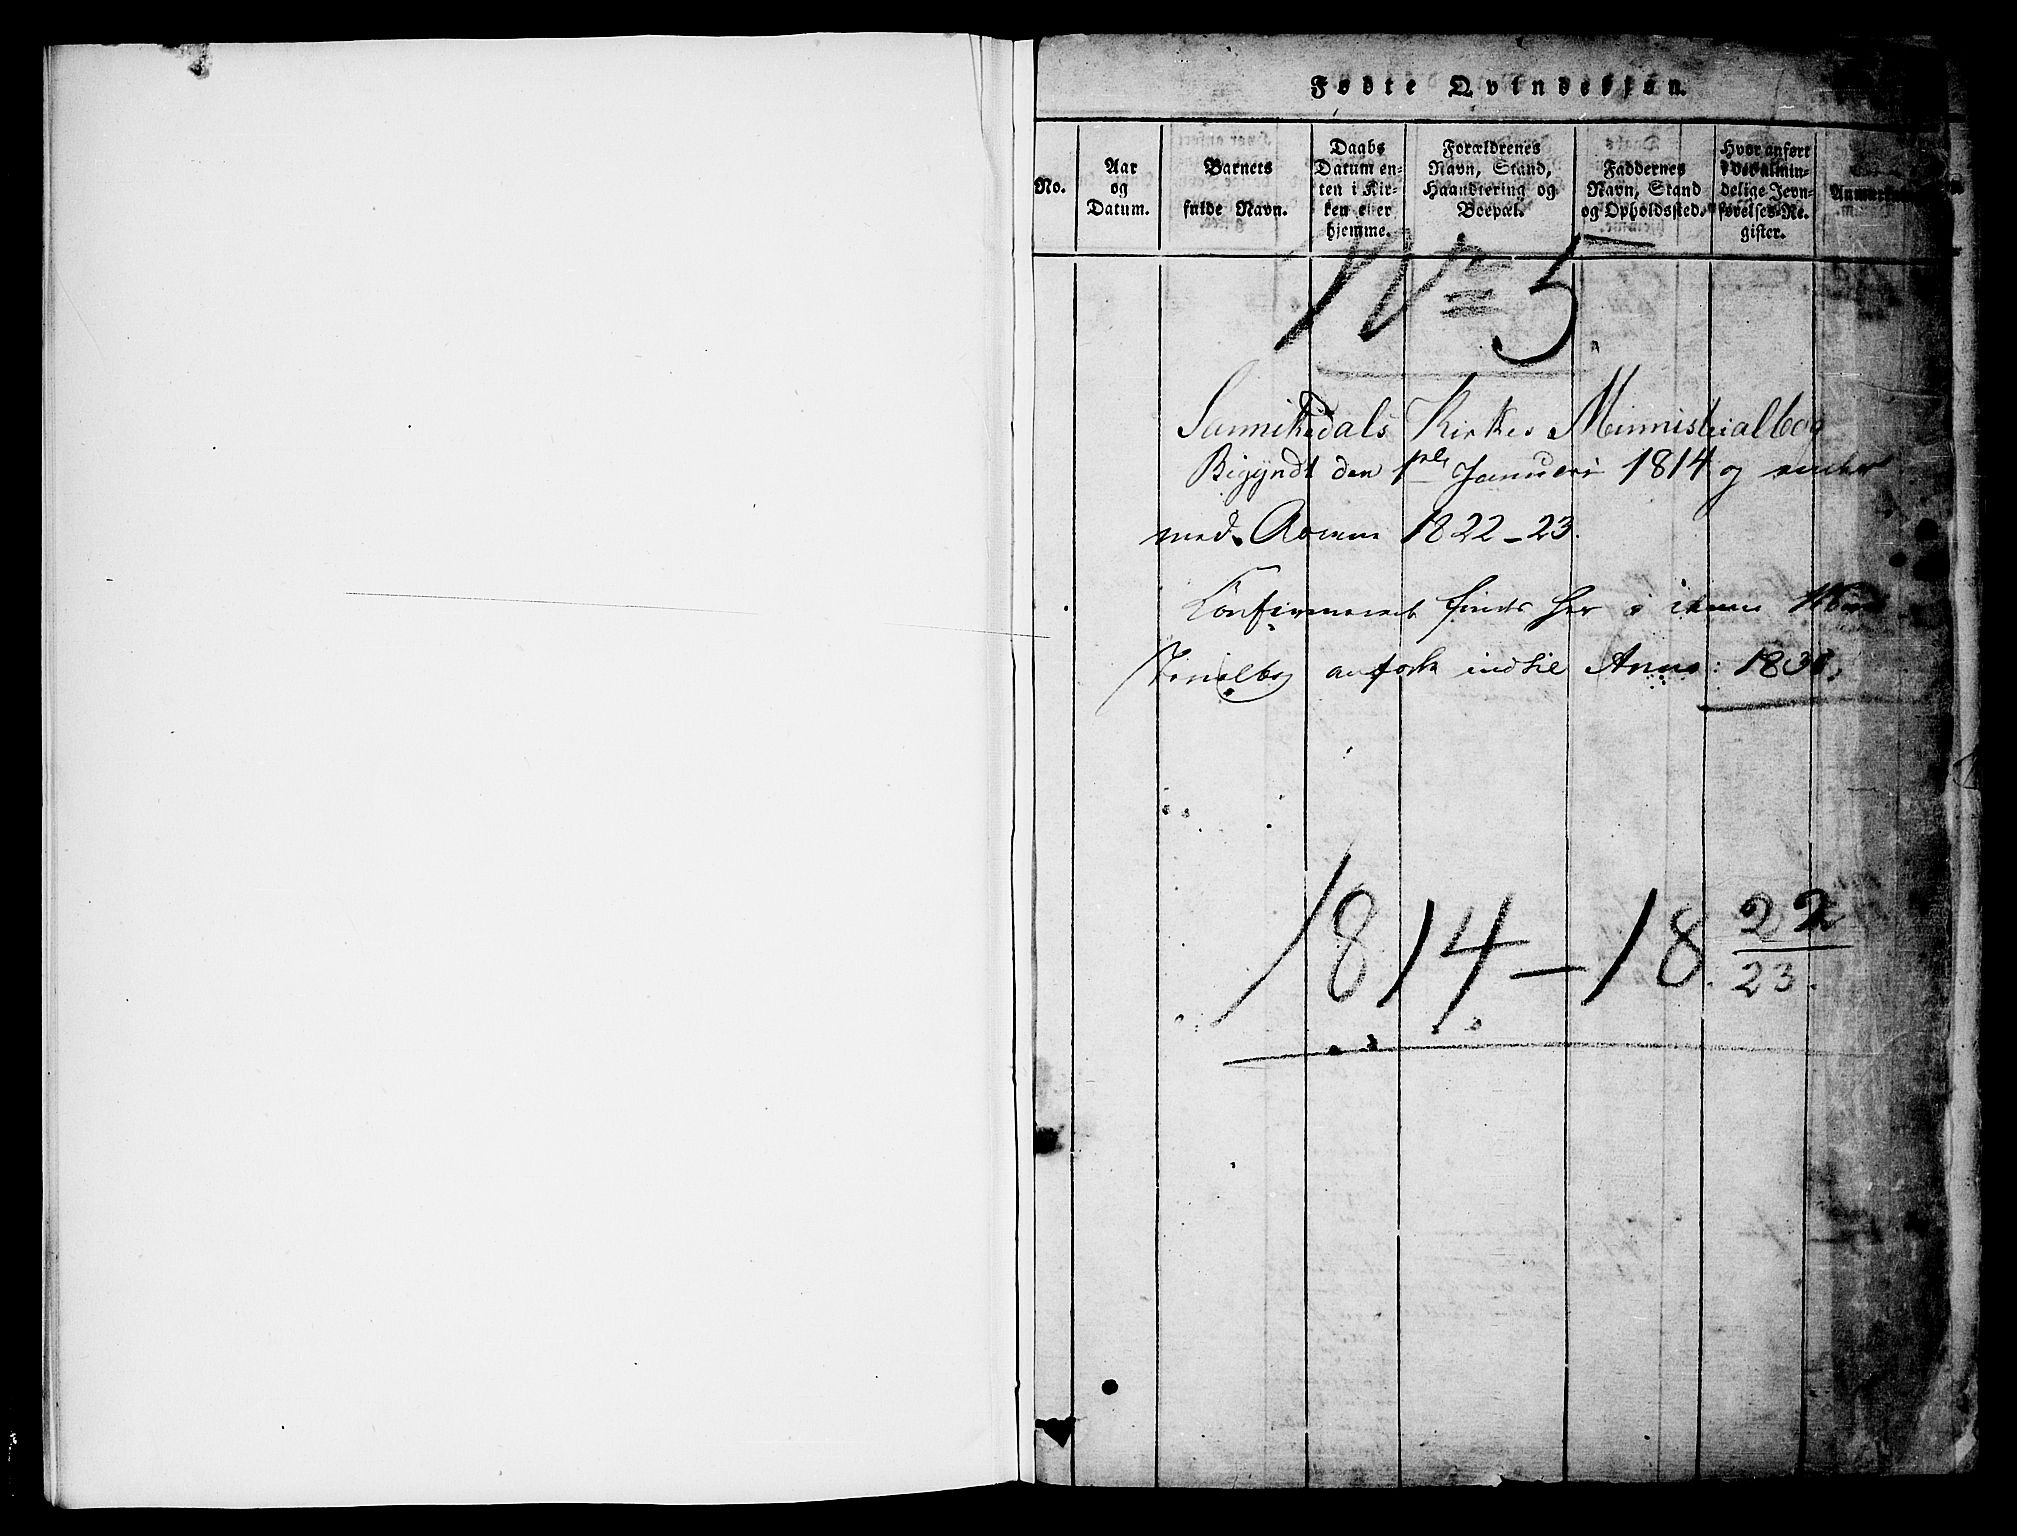 Fødte Qvindekjøn.
No.
Aar
og
Datum.
Barnets
fulde Navn.
Daabs
Datum en-
ten i Kir-
ken eller
hjemme.
Forældrenes
Navn, Stand,
Haandtering og
Boepæl.
Faddernes
Navn, Stand
og Opholdssted.
Hvor anført
i det almin-
delige Jevn-
førelses-Re-
gister.
No 5.
Sannikedals Kirkes Minnisterialbog
Bigyndt den 1ste Januari 1814 og ender
med Aarene 1822-23.
Confirmeret findes her i denne
anført indtil Anno: 1830,
1814-18 22
23.